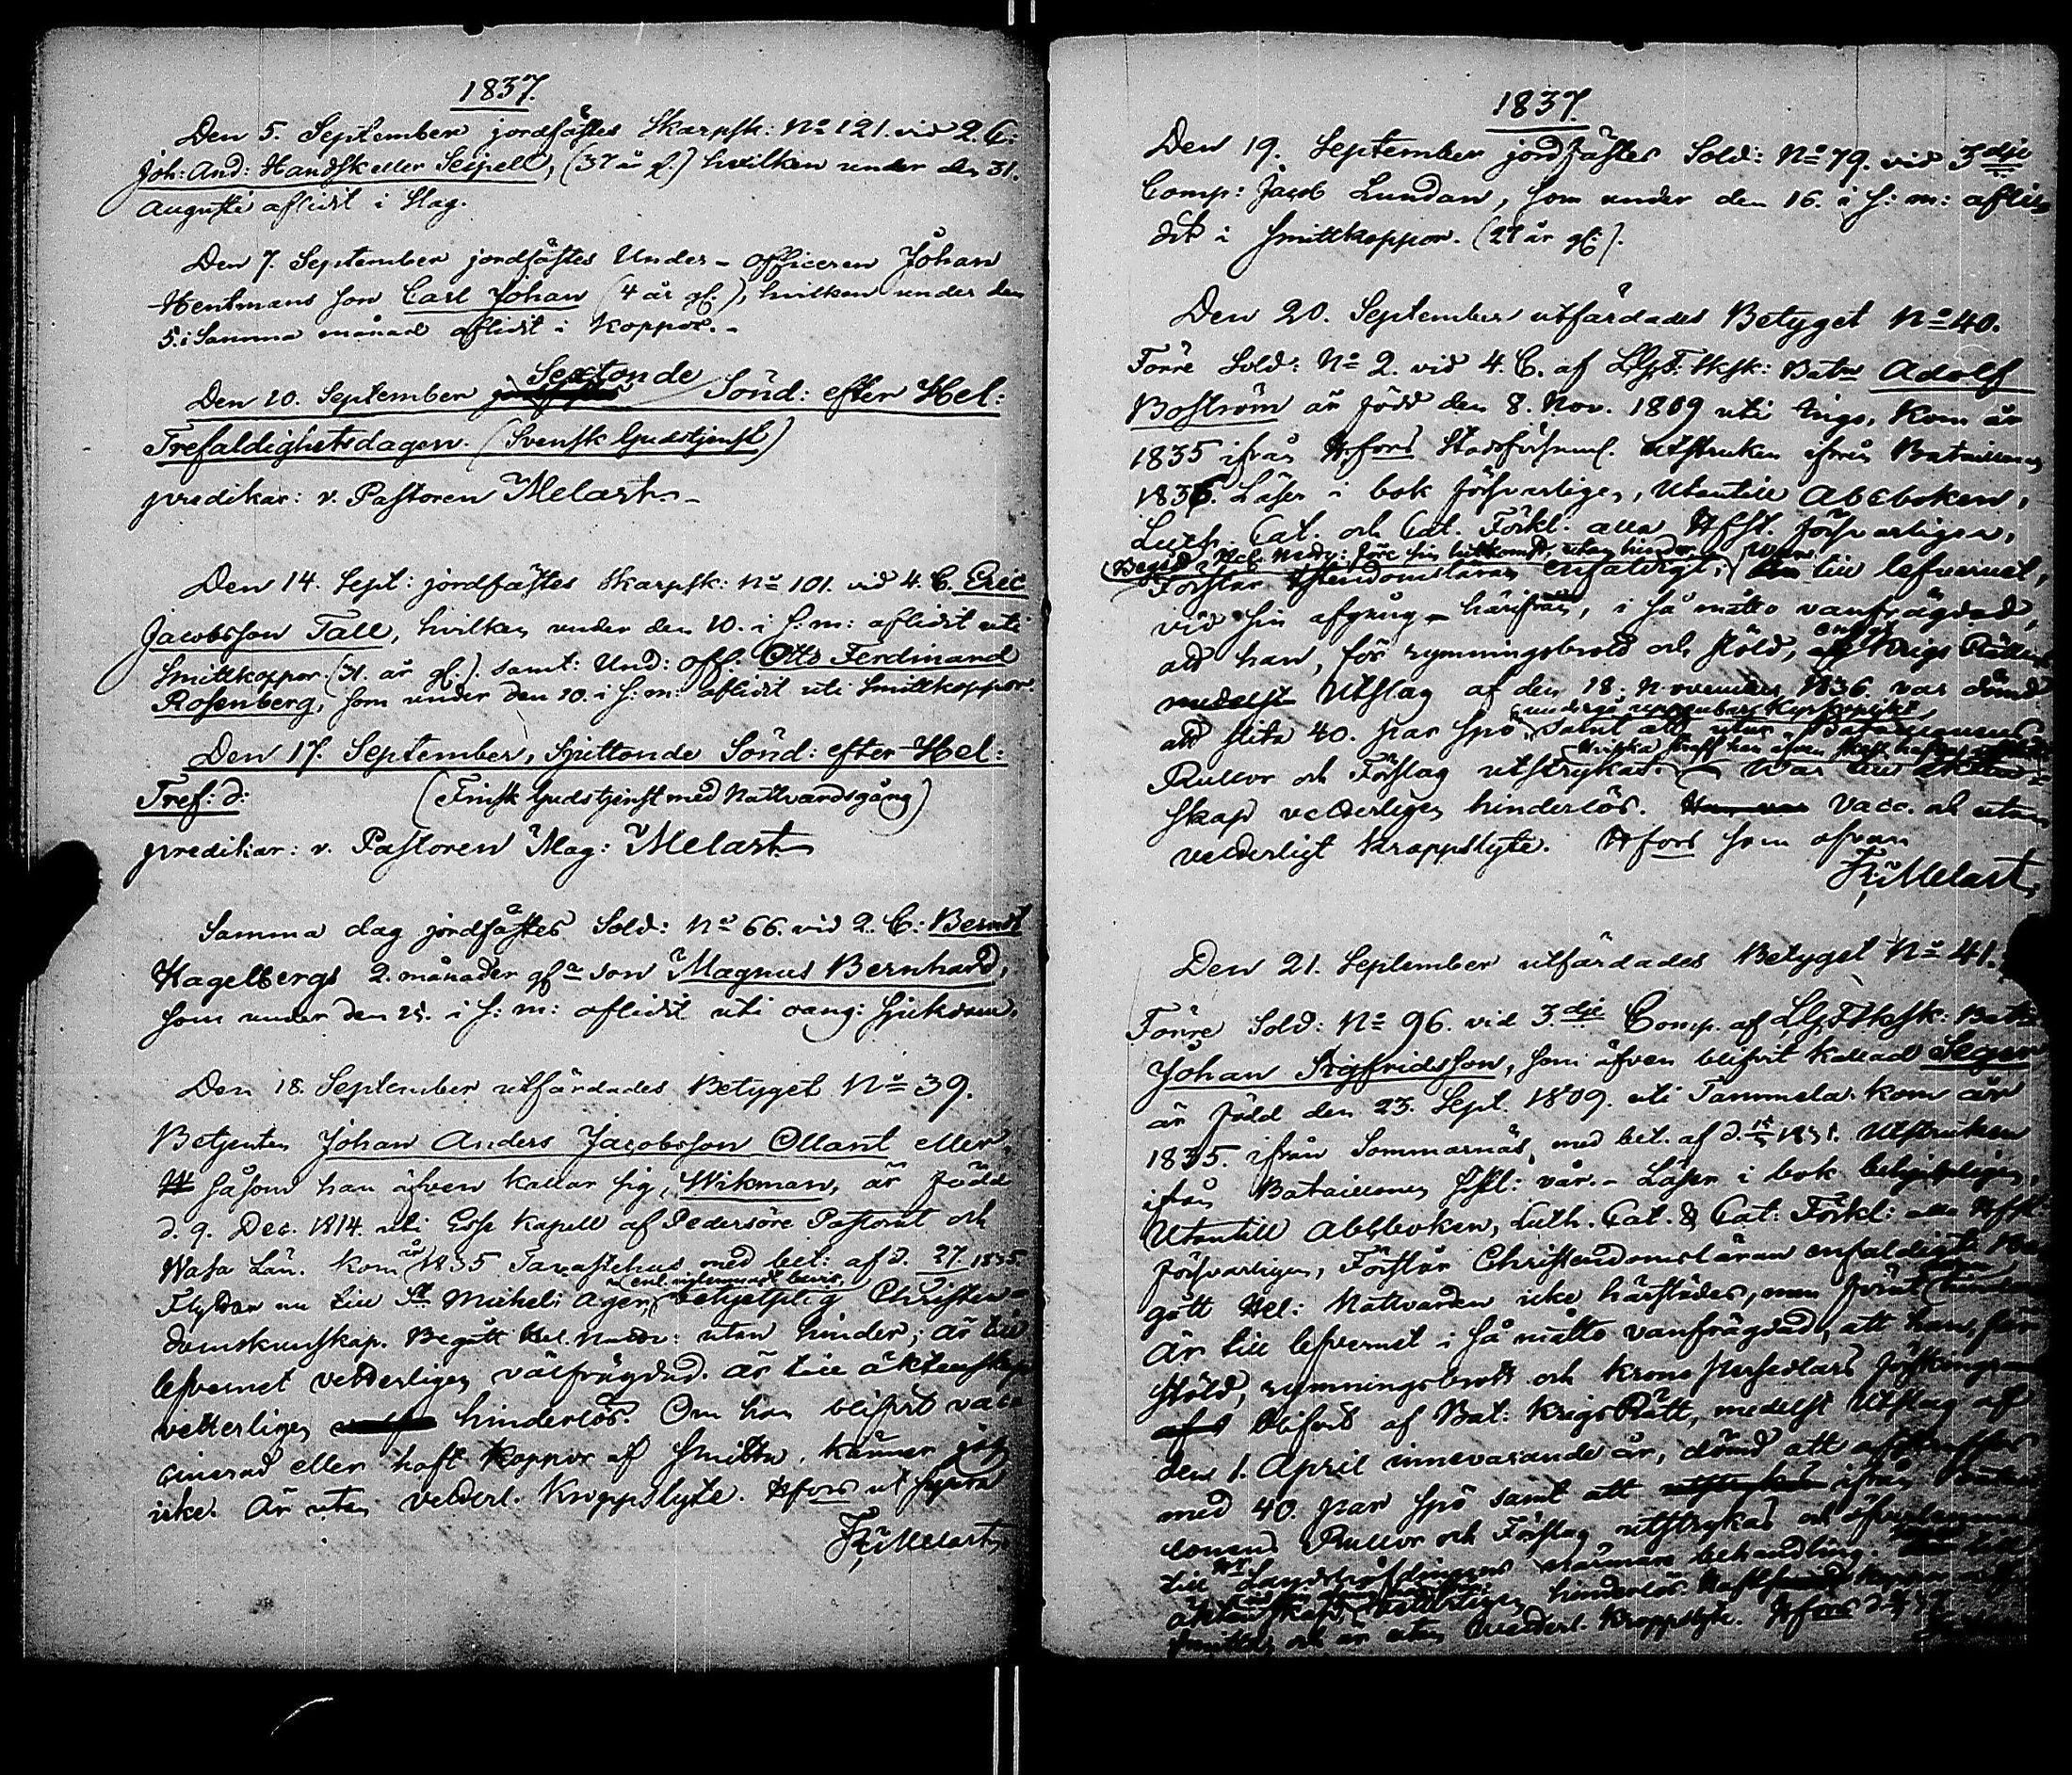 1837.
Den 5. September jordfästes Skarpsk: No 121. vid 2. C:
Joh: And: Handsk eller Seipell, (37 år gl.) hvilken under den 31.
Augusti aflidit i Slag.
Den 7. September jordfästes Under-officeren Johan
Hentmans son Carl Johan (4 år gl.), hvilken under den
5. i Samma månad aflidit i Koppor.-
Den 10. September Sextonde Sönd: efter Hel:
Trefaldighetsdagen. (Svensk Gudstjenst)
predikar: v. Pastoren Melart.-
Den 14. Sept: jordfästes Skarpsk: No 101. vid 4. C. Eric
Jacobsson Tall, hvilken under den 10. i s: m: aflidit uti
Smittkoppor (31. år gl.). samt: Und: off. Otto Ferdinand
Rosenberg, som under den 10. i s: m: aflidit uti Smittkoppor.
Den 17. September, Sjuttonde Sönd: efter Hel:
Tref: d: (Finsk Gudstjenst med Nattvardsgång)
predikar: v. Pastoren Mag: Melart
Samma dag jordfästes Sold: No 66. vid 2. C: Berndt
Hagelbergs 2. månader gla son Magnus Bernhard,
som under den i s: m: aflidit uti oang: sjukdom.
Den 18. September utfärdades Betyget No 39.
Betjenten Johan Anders Jacobsson Ollant eller,
såsom han äfven kallar sig, Wikman, är född
d. 9. Dec. 1814. uti Esse Kapell af Pedersöre Pastorat och
Wasa Län. Kom år 1835 Tavastehus med bet: af d. 27. 1835.
Flyttar nu till St Michel; Äger, enl. inlemnadt bevis, Christen-
domskunskap. Begått Hel. Nattv: utan hinder; är till
lefvernet vetterligen välfrägdad. är till äktenskap
vetterligen hinderlös. Om han blifvit vacc
cinerad eller haft koppor af Smitta, känner jag
icke. Är utan vetterl. Kroppslyte. Hfors ut supra
Melart
1837.
Den 19. September jordfästes Sold: No 79. vid 3dje
Comp: Jacob Lundan, som under den 16. i s: m: afli-
dit i Smittkoppor. (27 år gl:).
Den 20. September utfärdades Betyget No 40.
Förre Sold: No 2. vid 4. C. af Bat Adolf
Boström är född den 8. Nov. 1809 uti Ingo, Kom år
1835 ifrån Hfors Stadsförsaml. Utstruken ifrån Bataillonen
1836. Läser i bok försvarligen, Utantill Abcboken,
Luth. Cat. och Cat. Förkl. alla Hfst. försvarligen,
Begick Hel. Nattv: före sin hitkomst, utan hinder,
Förstår Xstendomsläran enfaldigt; var till lefvernet,
vid sin afgång härifrån, i så måtto vanfrägdad,
att han, för rymningsbrott och stöld, Krigs Rättens
Utslag af den 18. November 1836. var dömd
undergå uppenbar Kyrkoplikt
att slita 40. par Spö, samt att utur Bataillonens
Rullor och Förslag utstrykas. War till äkten-
skap vetterligen hinderlös. Vacc. och utan
vetterligt Kroppslyte. Hfors som ofvan
Melart
Den 21. September utfärdades Betyget No 41.
Förre Sold: No 96. vid 3.dje Comp. af Bat
Johan Sigfridsson, som äfven blifvit kallad Seger
är född den 23. Sept. 1809. uti Tammela. Kom år
1835. ifrån Sommarnäs, med bet. af d. 1835. Utstruken
ifrån Bataillonen sistl: vår.- Läser i bok
Utantill Abcboken, Luth. Cat. & Cat: Förkl: alla Hfst
försvarligen, Förstår Christendomsläran enfaldigt
gått Hel: Nattvarden icke härstädes, men förut
Är till lefvernet i så måtto vanfrägdad, att han, för
stöld, rymningsbrott och Krono persedlars förskingrande
blifvit af Bat: Krigs Rätt, medelst Utslag af
den 1. April innevarande år, dömd att afstraffas
med 40. par Spö samt att ifrån
lonens Rullor och Förslag utstrykas och öfverlemnas
till Landshöfdingens närmare behandling.
äktenskap vetterligen hinderlös.
Smitta, och är utan vetterl. Kroppslyte. Hfors